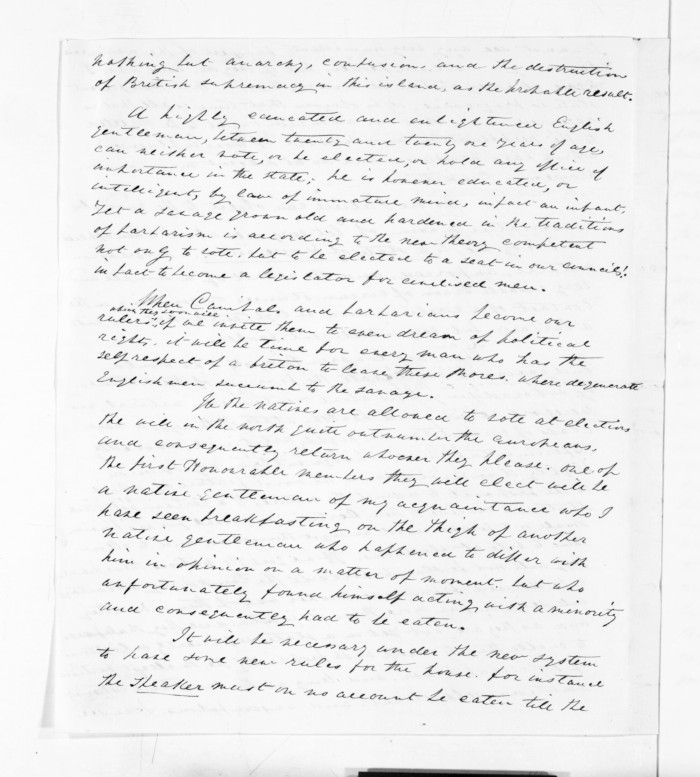 nothing but anarchy, confusion and the destruction
of British supremacy in this island, as the probable result.
A highly educated and enlightened English
gentleman, between twenty and twenty one years of age,
can neither vote, or be elected, or hold any office of
importance in the state; he is however educated, or
intelligent, by law of immature mind, in fact an infant,
yet a savage grown old and hardened in the traditions
of barbarism is according to the new theory competent
not only to vote, but to be elected to a seat in our council!;
in fact to become a legislator for civilised men.
When Canibals and barbarians become our
when they soon will
rulers, if we invite them to even dream of political
rights, it will be time for every man who has the
self respect of a briton to leave these shores, where degenerate
Englishmen succumb to the savage.
If the natives are allowed to vote at elections
the will in the north quite outnumber the Europeans,
and consequently return whoever they please. One of
the first Honourable members they will elect will be
a native gentleman of my acquaintance who I
have seen breakfasting on the thigh of another
native gentleman who happened to differ with
him in opinion on a matter of moment, but who
unfortunately found himself acting with a minority
and consequently had to be eaten.
It will be necessary under the new system
to have some new rules for the house. for instance
the Speaker must on no account be eaten till the